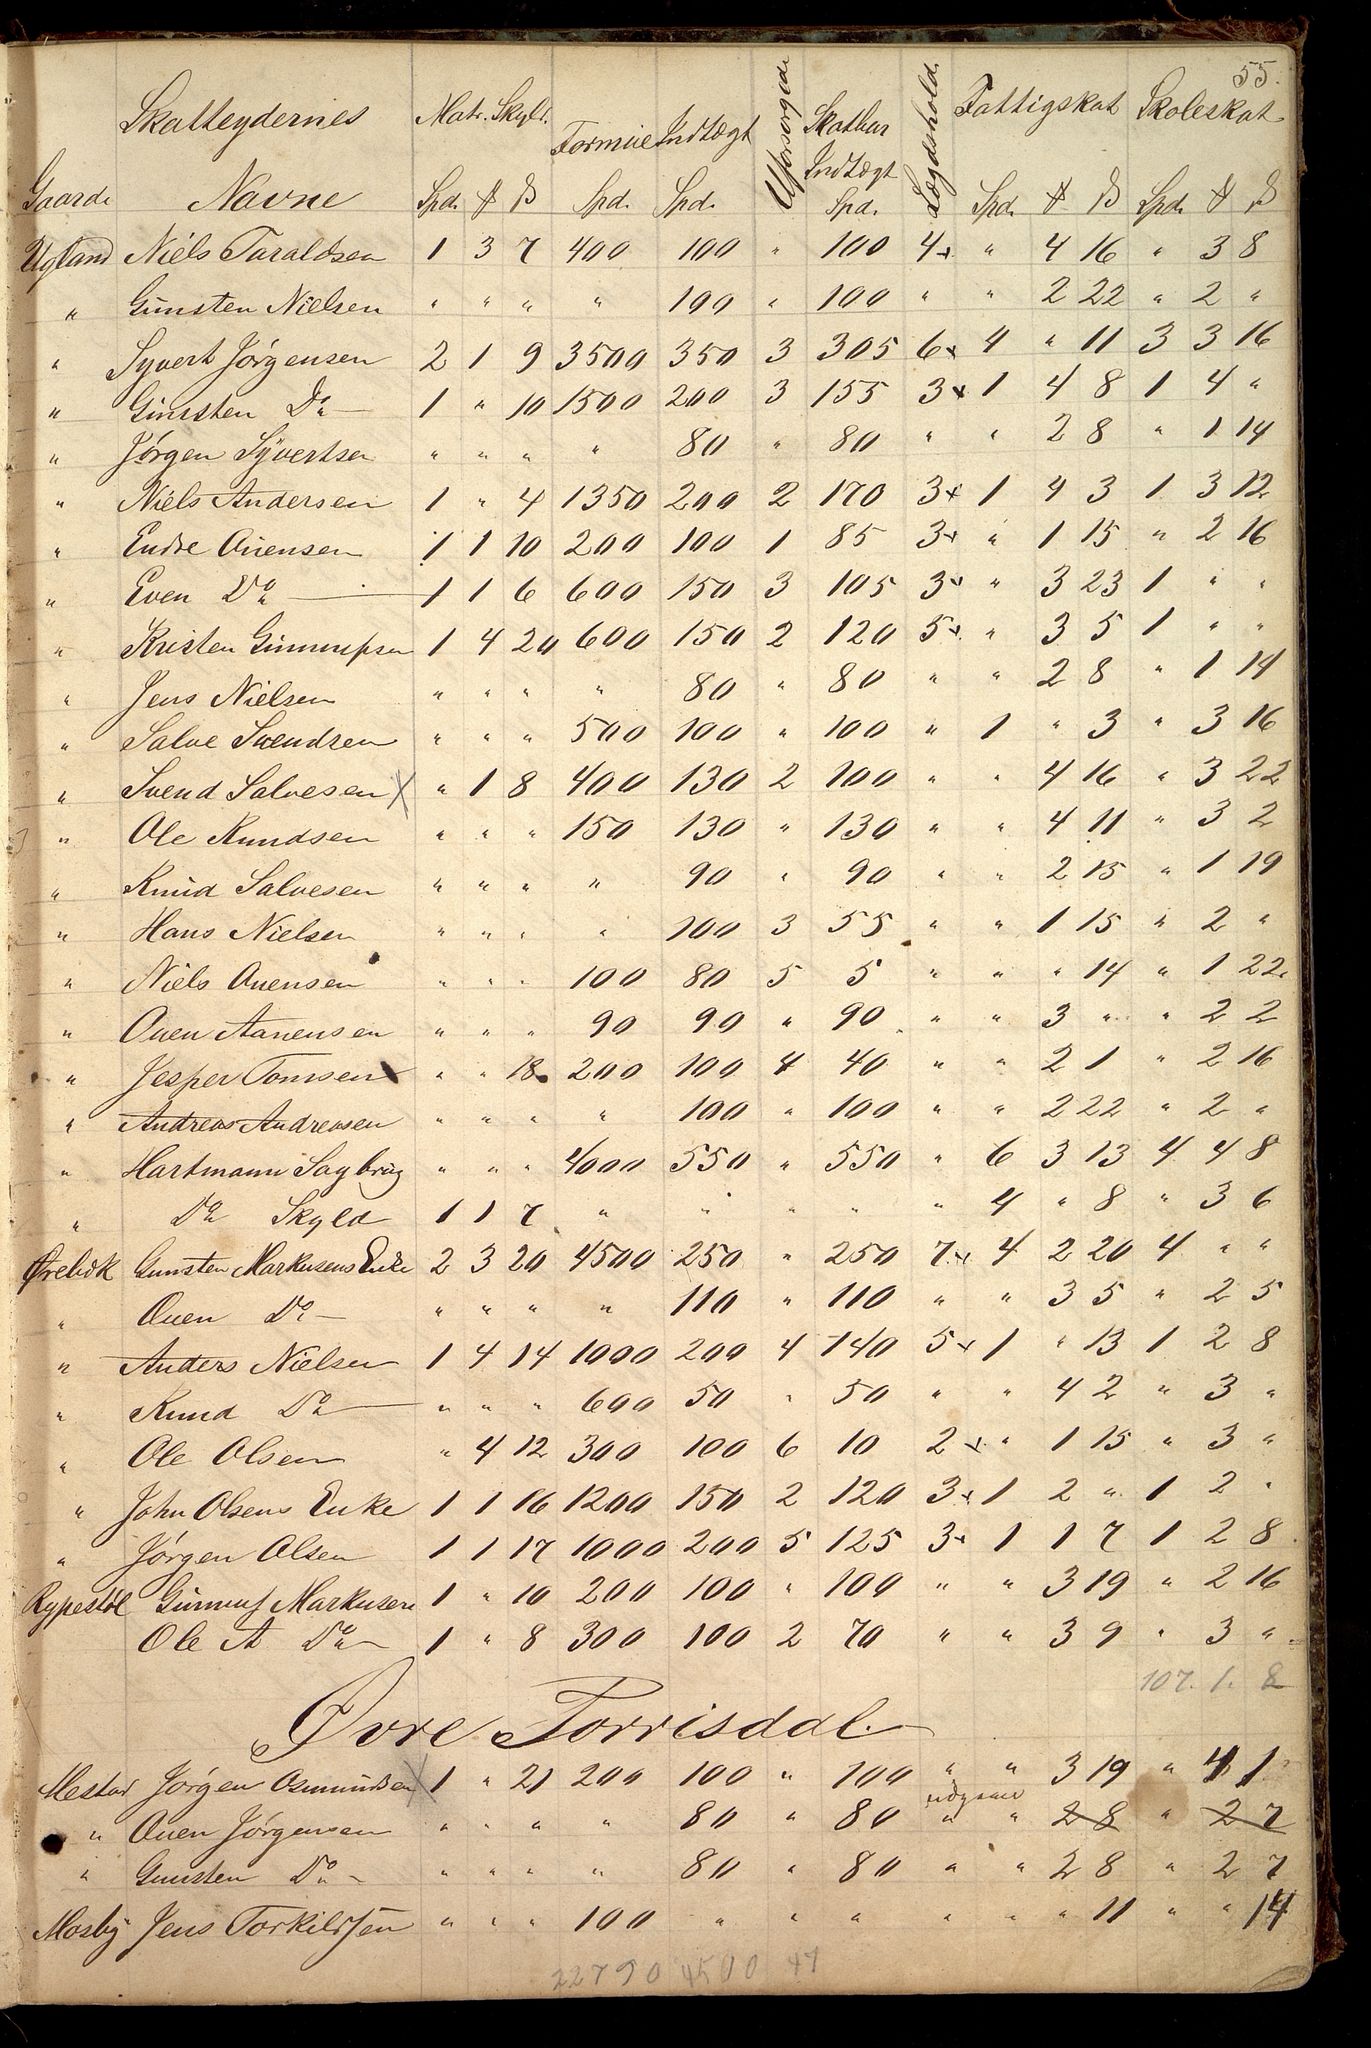 55.
Skatteydernes Matr. Skyld. Formue Indtægt Uforsørgede Skatbar Lægdshold. Fattigskat Skoleskat
Indtægt
Gaarde Navne Spd. ₰ ß Spd. Spd. Spd. Spd. ₰ ß Spd. ₰ ß
Ugland Niels Taraldsen 1 3 7 400 100 " 100 4+ " 4 16 " 3 8
" Gunsten Nielsen " " " " 100 " 100 " " 2 22 " 2 "
" Syvert Jørgensen 2 1 9 3500 350 3 305 6+ 4 " 11 3 3 16
" Gunsten Do 1 " 10 1500 200 3 155 3+ 1 4 8 1 4 "
" Jørgen Syvertsen " " " " 80 " 80 " " 2 8 " 1 14
" Niels Andersen 1 " 4 1350 200 2 170 3+ 1 4 3 1 3 12
" Endre Ouensen 1 1 10 200 100 1 85 3+ " 1 15 " 2 16
" Even Do 1 1 6 600 150 3 105 3+ " 3 23 1 " "
" Kristen Gunnufsen 1 4 20 600 150 2 120 5+ " 3 5 1 " "
" Jens Nielsen " " " " 80 " 80 " " 2 8 " 1 14
" Salve Svendsen " " " 500 100 " 100 " 1 " 3 " 3 16
" Svend Salvesen X " 1 8 400 130 2 100 " " 4 16 " 3 22
" Ole Knudsen " " " 150 130 " 130 " " 4 11 " 3 2
" Knud Salvesen " " " " 90 " 90 " " 2 15 " 1 19
" Hans Nielsen " " " " 100 3 55 " " 1 15 " 2 "
" Niels Ouensen " " " 100 80 5 5 " " " 14 " 1 22
" Ouen Aanensen " " " 90 90 " 90 " " 3 " " 2 2
" Jesper Tomsen " " 18 200 100 4 40 " " 2 1 " 2 16
" Andreas Andreasen " " " " 100 " 100 " " 2 22 " 2 "
" Hartmann Sagbrug " " " 4000 550 " 550 " 6 3 13 4 4 8
" Do Skyld 1 1 7 " " " " " 4 " 8 " 3 6
Ørebek Gunsten Markusens Enke 2 3 20 4500 250 " 250 7+ 4 2 20 4 " "
" Ouen Do " " " " 110 " 110 " " 3 5 " 2 5
" Anders Nielsen 1 4 14 1000 200 4 140 5+ 1 " 13 1 2 8
" Knud Do " " " 600 50 " 50 " " 4 2 " 3 "
" Ole Olsen " 4 12 300 100 6 10 2+ " 1 15 " 3 "
" John Olsens Enke 1 1 16 1200 150 2 120 3+ 1 2 " 1 2 "
" Jørgen Olsen 1 1 17 1000 200 5 125 3+ 1 1 7 1 2 8
Rypestøl Gunnuf Markusen 1 " 10 200 100 " 100 " " 3 19 " 2 16
Ole A Do 1 " 8 300 100 2 70 " " 3 9 " 3 "
107. 1. 8
Øvre Torrisdal
Mestad Jørgen Osmundsen X 1 " 21 200 100 " 100 " " 3 19 " 4 1
" Ouen Jørgensen " " " " 80 " 80 " " 2 8 " 2 7
" Gunsten Do " " " " 80 " 80 " " 2 8 " 2 7
Mosby Jens Torkildsen " " " 100 " " " " " " 11 " " 14
22790 4500 47